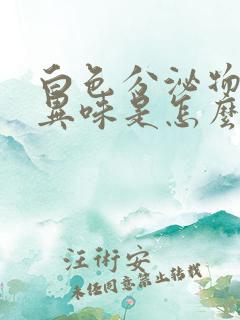 白色分泌物
異味是怎麼
汪術安
未经同意禁止转载